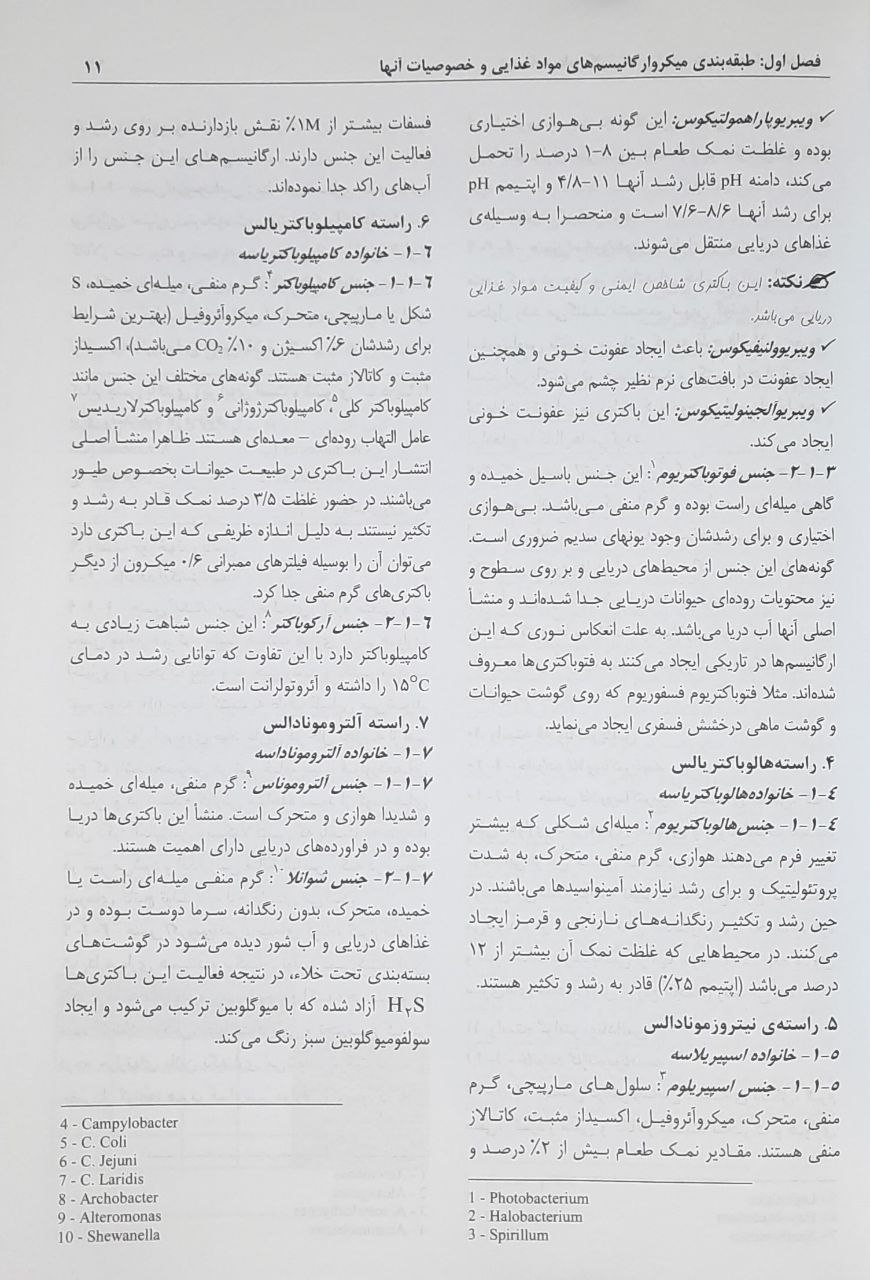 فصل اول: طبقه‌بندی میکروارگانیسم‌های مواد غذایی و خصوصیات آنها ۱۱
✓ ویبریوپاراهمولتیکوس: این گونه بی‌هوازی اختیاری
بوده و غلظت نمک طعام بین ۸–۱ درصد را تحمل
می‌کند، دامنه pH قابل رشد آنها ۱۱–۴/۸ و اپتیمم pH
برای رشد آنها ۸/۶–۷/۶ است و منحصرا به وسیله‌ی
غذاهای دریایی منتقل می‌شوند.
نکته: این باکتری شاخص ایمنی و کیفیت مواد غذایی
دریایی می‌باشد.
✓ ویبریوولنیفیکوس: باعث ایجاد عفونت خونی و همچنین
ایجاد عفونت در بافت‌های نرم نظیر چشم می‌شود.
✓ ویبریوآلجینولیتیکوس: این باکتری نیز عفونت خونی
ایجاد می‌کند.
۳-۱-۲- جنس فوتوباکتریوم۱: این جنس باسیل خمیده و
گاهی میله‌ای راست بوده و گرم منفی می‌باشد. بی‌هوازی
اختیاری و برای رشدشان وجود یونهای سدیم ضروری است.
گونه‌های این جنس از محیط‌های دریایی و بر روی سطوح و
نیز محتویات روده‌ای حیوانات دریایی جدا شده‌اند و منشأ
اصلی آنها آب دریا می‌باشد. به علت انعکاس نوری که این
ارگانیسم‌ها در تاریکی ایجاد می‌کنند به فتوباکتری‌ها معروف
شده‌اند. مثلا فتوباکتریوم فسفوریوم که روی گوشت حیوانات
و گوشت ماهی درخشش فسفری ایجاد می‌نماید.
۴. راسته‌هالوباکتریالس
۴-۱- خانواده‌هالوباکتریاسه
۴-۱-۱- جنس‌هالوباکتریوم۲: میله‌ای شکلی که بیشتر
تغییر فرم می‌دهند هوازی، گرم منفی، متحرک، به شدت
پروتئولیتیک و برای رشد نیازمند آمینواسیدها می‌باشند. در
حین رشد و تکثیر رنگدانه‌های نارنجی و قرمز ایجاد
می‌کنند. در محیط‌هایی که غلظت نمک آن بیشتر از ۱۲
درصد می‌باشد (اپتیمم ۲۵٪) قادر به رشد و تکثیر هستند.
۵. راسته‌ی نیتروزمونادالس
۵-۱- خانواده اسپیریلاسه
۵-۱-۱- جنس اسپیریلوم۳: سلول‌های مارپیچی، گرم
منفی، متحرک، میکروآئروفیل، اکسیداز مثبت، کاتالاز
منفی هستند. مقادیر نمک طعام بیش از ۲٪ درصد و
1 - Photobacterium
2 - Halobacterium
3 - Spirillum
فسفات بیشتر از ۱M٪ نقش بازدارنده بر روی رشد و
فعالیت این جنس دارند. ارگانیسم‌های این جنس را از
آب‌های راکد جدا نموده‌اند.
۶. راسته کامپیلوباکتریالس
۶-۱- خانواده کامپیلوباکتریاسه
۶-۱-۱- جنس کامپیلوباکتر۴: گرم منفی، میله‌ای خمیده، S
شکل یا مارپیچی، متحرک، میکروآئروفیل (بهترین شرایط
برای رشدشان ۶٪ اکسیژن و ۱۰٪ CO₂ می‌باشد)، اکسیداز
مثبت و کاتالاز مثبت هستند. گونه‌های مختلف این جنس مانند
کامپیلوباکتر کلی۵، کامپیلوباکترژوژانی۶ و کامپیلوباکترلاریدیس۷
عامل التهاب روده‌ای – معده‌ای هستند. ظاهرا منشأ اصلی
انتشار این باکتری در طبیعت حیوانات بخصوص طیور
می‌باشند. در حضور غلظت ۳/۵ درصد نمک قادر به رشد و
تکثیر نیستند. به دلیل اندازه ظریفی که این باکتری دارد
می‌توان آن را بوسیله فیلترهای ممبرانی ۰/۶ میکرون از دیگر
باکتری‌های گرم منفی جدا کرد.
۶-۱-۲- جنس آرکوباکتر۸: این جنس شباهت زیادی به
کامپیلوباکتر دارد با این تفاوت که توانایی رشد در دمای
۱۵°C را داشته و آئروتولرانت است.
۷. راسته آلترومونادالس
۷-۱- خانواده آلتروموناداسه
۷-۱-۱- جنس آلتروموناس۹: گرم منفی، میله‌ای خمیده
و شدیدا هوازی و متحرک است. منشأ این باکتری‌ها دریا
بوده و در فراورده‌های دریایی دارای اهمیت هستند.
۷-۱-۲- جنس شوانلا۱۰: گرم منفی میله‌ای راست یا
خمیده، متحرک، بدون رنگدانه، سرما دوست بوده و در
غذاهای دریایی و آب شور دیده می‌شود در گوشت‌های
بسته‌بندی تحت خلاء، در نتیجه فعالیت این باکتری‌ها
H₂S آزاد شده که با میوگلوبین ترکیب می‌شود و ایجاد
سولفومیوگلوبین سبز رنگ می‌کند.
4 - Campylobacter
5 - C. Coli
6 - C. Jejuni
7 - C. Laridis
8 - Archobacter
9 - Alteromonas
10 - Shewanella